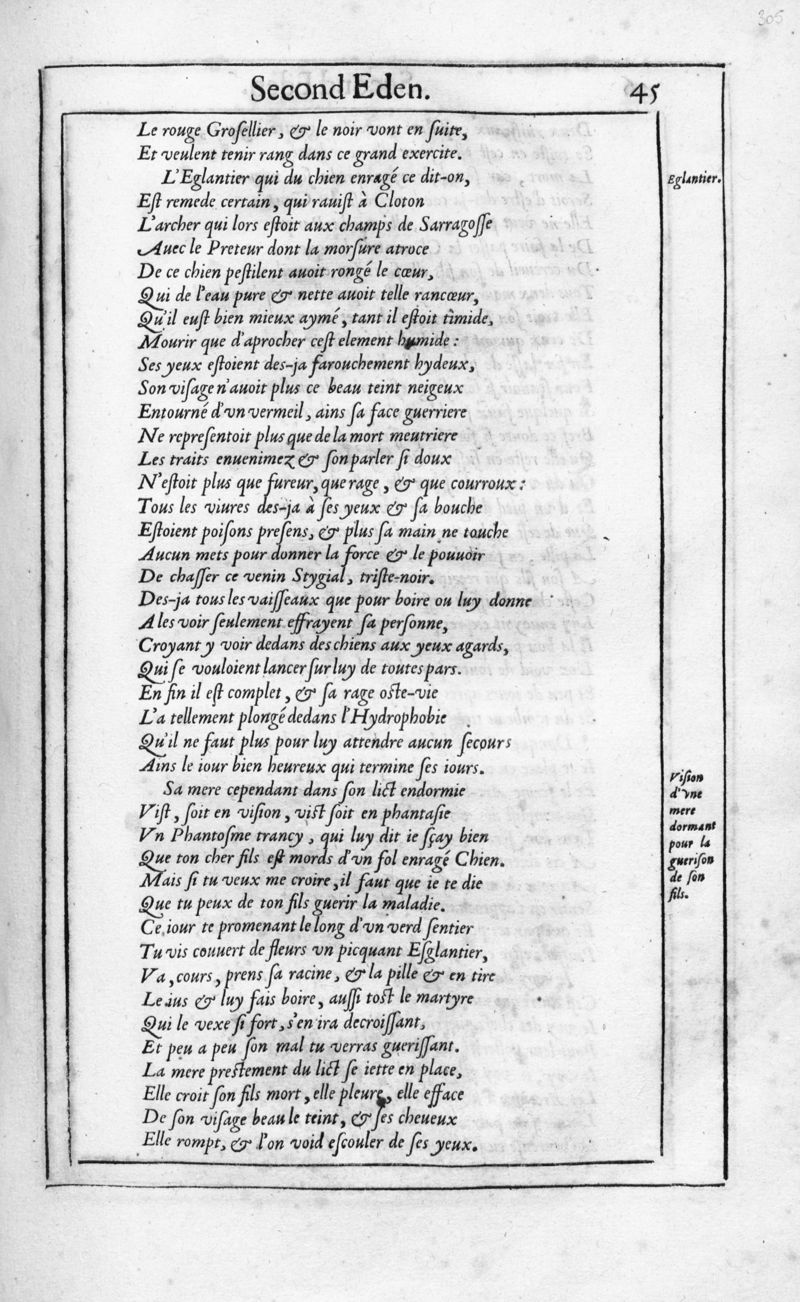 305
Second Eden. 45
Le rouge Groſellier, & le noir vont en ſuite,
Et veulent tenir rang dans ce grand exercite.
L'Eglantier qui du chien enragé ce dit-on,
Eſt remede certain, qui rauiſt à Cloton
L'archer qui lors eſtoit aux champs de Sarragoſſe
Auec le Preteur dont la morſure atroce
De ce chien peſtilent auoit rongé le cœur,
Qui de l'eau pure & nette auoit telle rancœur,
Qu'il euſt bien mieux aymé, tant il eſtoit timide,
Mourir que d'aprocher ceſt element humide :
Ses yeux eſtoient des-ja farouchement hydeux,
Son viſage n'auoit plus ce beau teint neigeux
Entourné d'vn vermeil, ains ſa face guerriere
Ne repreſentoit plus que de la mort meutriere
Les traits enuenimez & ſon parler ſi doux
N'eſtoit plus que fureur, que rage, & que courroux :
Tous les viures des-ja à ſes yeux & ſa bouche
Eſtoient poiſons preſens, & plus ſa main ne touche
Aucun mets pour donner la force & le pouuoir
De chaſſer ce venin Stygial, triſte-noir.
Des-ja tous les vaiſſeaux que pour boire ou luy donne
A les voir ſeulement effrayent ſa perſonne,
Croyant y voir dedans des chiens aux yeux agards,
Qui ſe vouloient lancer ſur luy de toutes pars.
En fin il eſt complet, & ſa rage oſte-vie
L'a tellement plongé dedans l'Hydrophobie
Qu'il ne faut plus pour luy attendre aucun ſecours
Ains le iour bien heureux qui termine ſes iours.
Sa mere cependant dans ſon lict endormie
Viſt, ſoit en viſion, viſt ſoit en phantaſie
Vn Phantoſme trancy, qui luy dit ie ſçay bien
Que ton cher fils eſt mords d'vn fol enragé Chien.
Mais ſi tu veux me croire, il faut que ie te die
Que tu peux de ton fils guerir la maladie.
Ce iour te promenant le long d'vn verd ſentier
Tu vis couuert de fleurs vn picquant Eſglantier,
Va, cours, prens ſa racine, & la pille & en tire
Le ius & luy fais boire, auſſi toſt le martyre
Qui le vexe ſi fort, s'en ira decroiſſant,
Et peu a peu ſon mal tu verras gueriſſant.
La mere preſtement du lict ſe iette en place,
Elle croit ſon fils mort, elle pleure, elle efface
De ſon viſage beau le teint, & ſes cheueux
Elle rompt, & l'on void eſcouler de ſes yeux.
Eglantier.
Viſion
d'vne
mere
dormant
pour la
gueriſon
de ſon
fils.